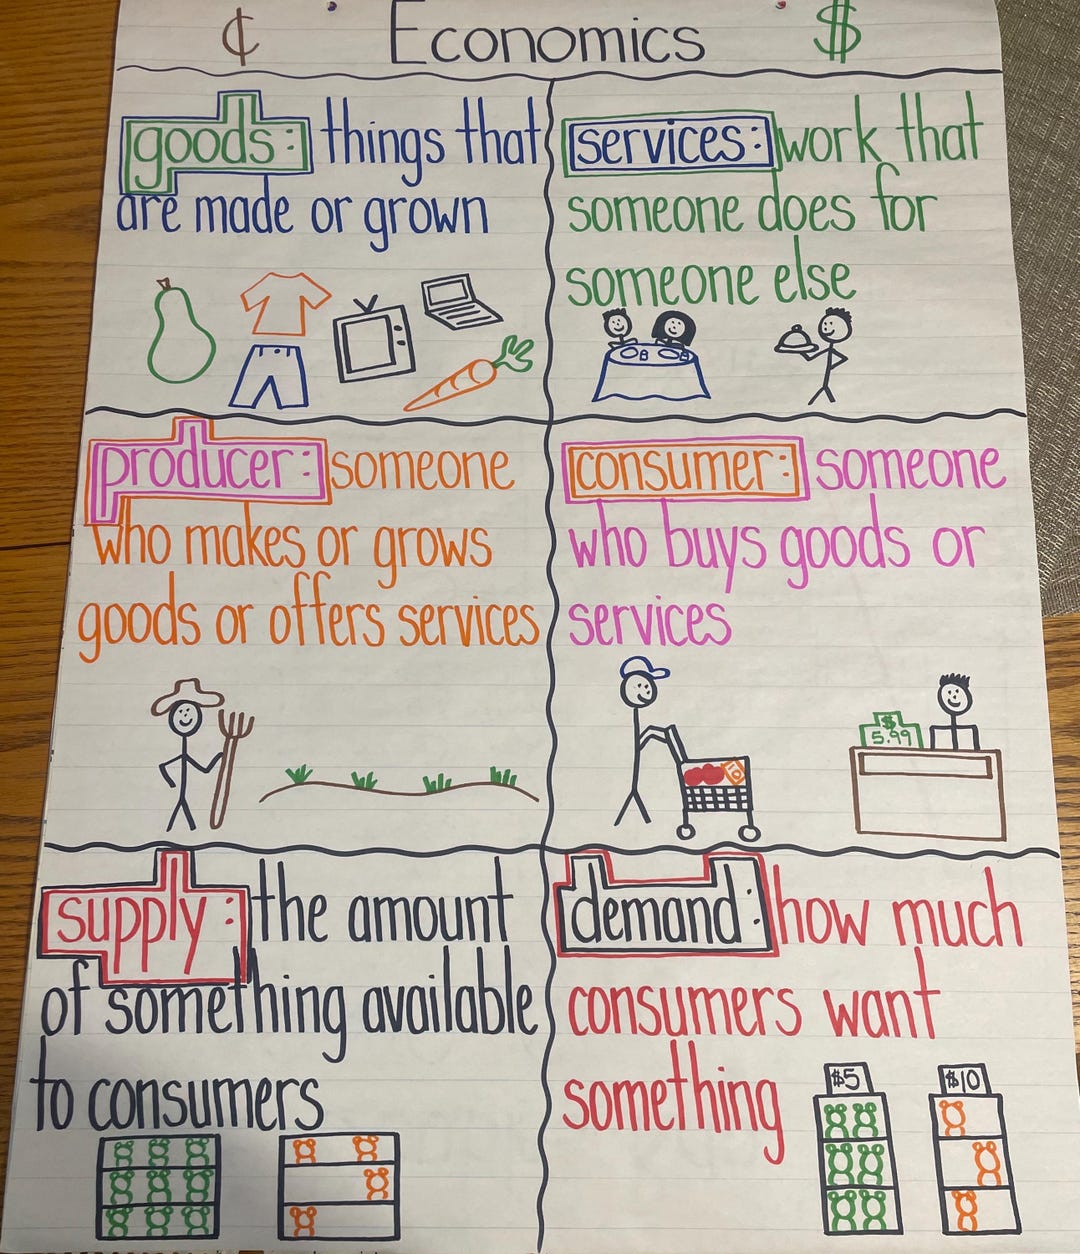 ¢ Economics $
goods: things that
are made or grown
services: work that
someone does for
someone else
producer: someone
who makes or grows
goods or offers services
consumer: someone
who buys goods or
services
$
5.99
supply: the amount
of something available
to consumers
demand: how much
consumers want
something
$5
$10